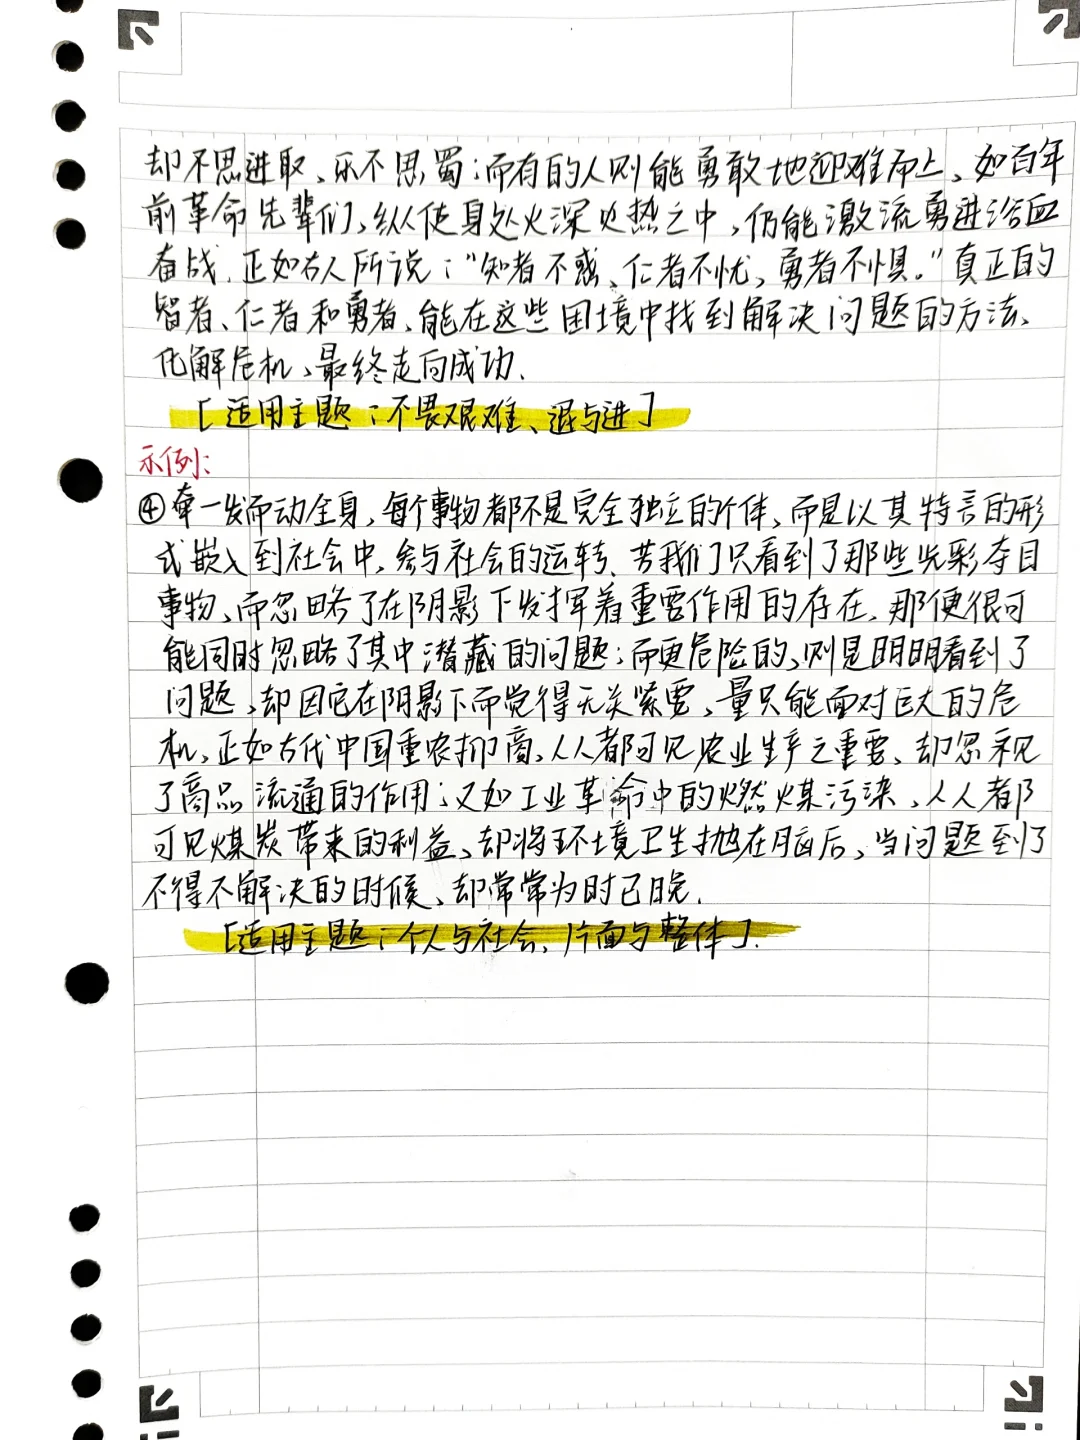 却不思进取、乐不思蜀；而有的人则能勇敢地迎难而上、如百年
前革命先辈们，纵使身处火深火热之中，仍能激流勇进浴血
奋战．正如古人所说："知者不惑、仁者不忧，勇者不惧."真正的
智者、仁者和勇者、能在这些困境中找到解决问题的方法、
化解危机、最终走向成功．
[适用主题：不畏艰难、退与进]
示例：
④牵一发而动全身，每个事物都不是完全独立的个体，而是以其特言的形
式嵌入到社会中，参与社会的运转、若我们只看到了那些光彩夺目
事物、而忽略了在阴影下发挥着重要作用的存在．那便很可
能同时忽略了其中潜藏的问题；而更危险的、则是明明看到了
问题、却因它在阴影下而觉得无关紧要，量只能面对巨大的危
机、正如古代中国重农抑商、人人都可见农业生产之重要、却忽视
了商品流通的作用；又如工业革命中的燃煤污染、人人都
可见煤炭带来的利益、却将环境卫生抛在脑后，当问题到了
不得不解决的时候、却常常为时已晚．
[适用主题：个人与社会、片面与整体]．